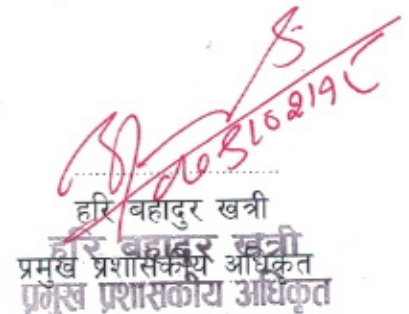 हरि बहादुर खत्री
हरि बहादुर खत्री
प्रमुख प्रशासकीय अधिकृत
प्रमुख प्रशासकीय अधिकृत